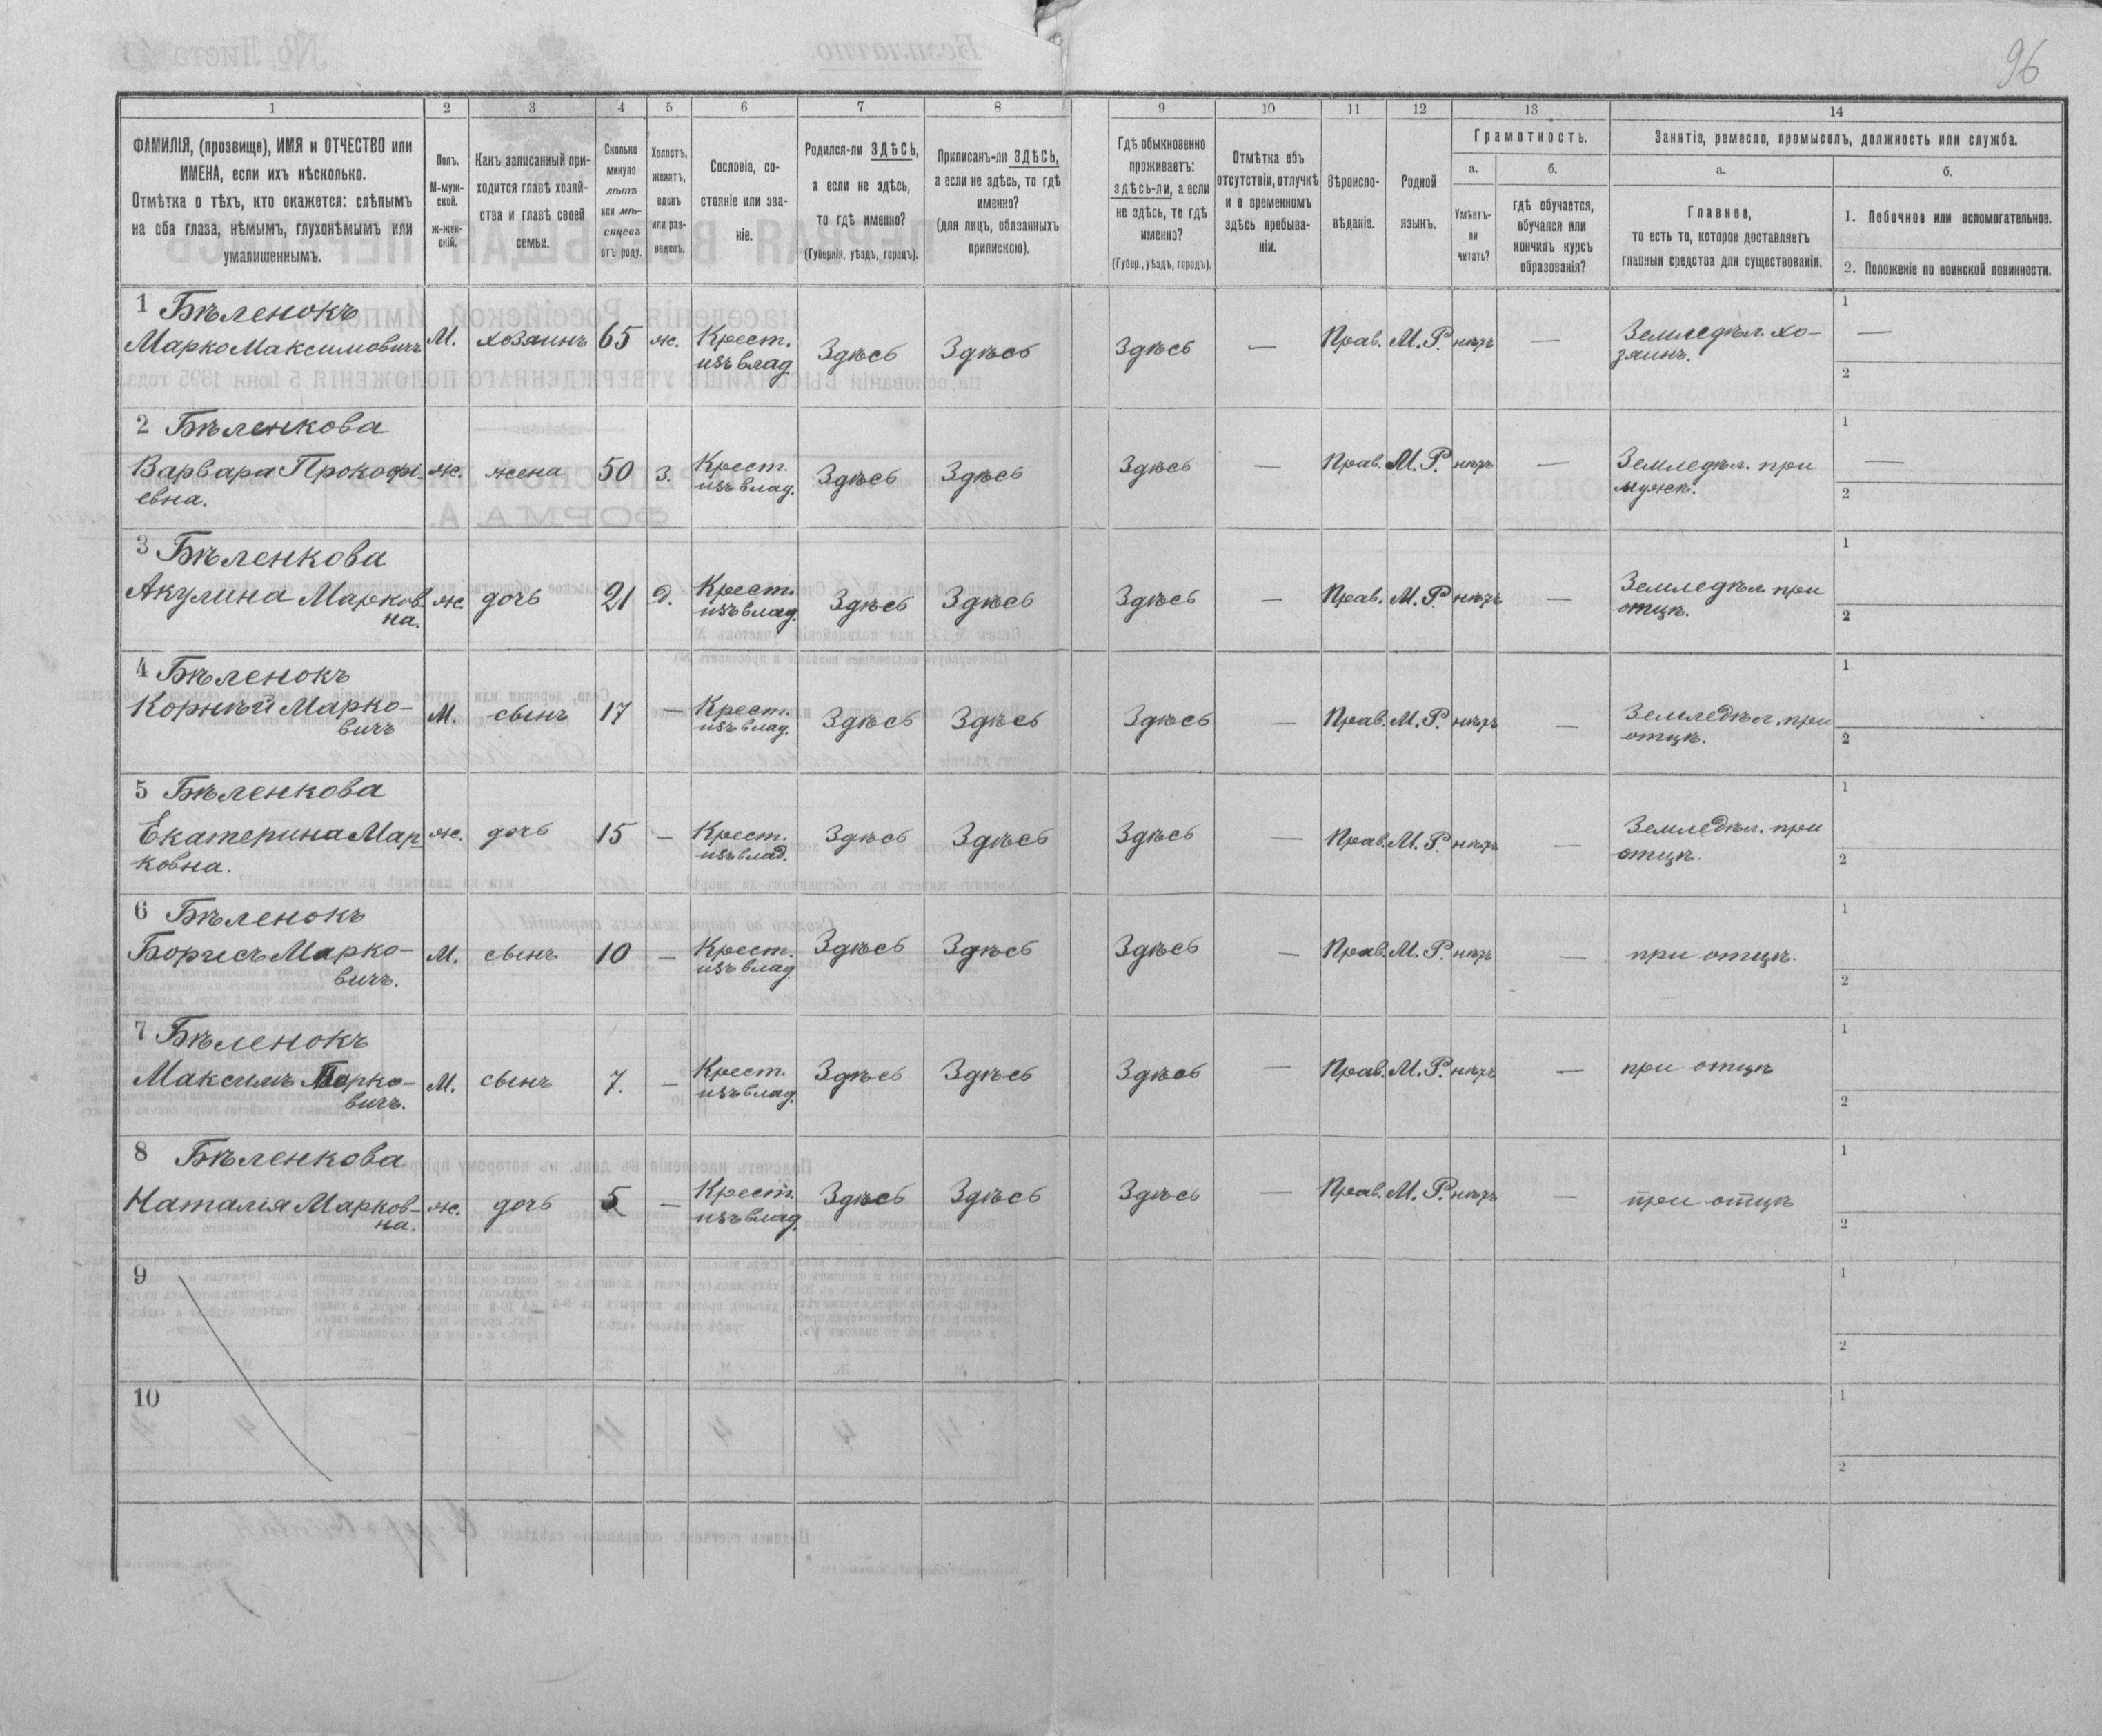 96
1 2 3 4 5 6 7 8 9 10 11 12 13 14
ФАМИЛІЯ, (прозвище), ИМЯ и ОТЧЕСТВО или
ИМЕНА, если ихъ нѣсколько.
Отмѣтка о тѣхъ, кто окажется: слѣпымъ
на оба глаза, нѣмымъ, глухонѣмымъ или
умалишеннымъ.
Полъ.
М-муж-
ской.
ж-жен-
скій.
Какъ записанный при-
ходится главѣ хозяй-
ства и главѣ своей
семьи.
Сколько
минуло
лѣтъ
или мѣ-
сяцевъ
отъ роду.
Холостъ,
женатъ,
вдовъ
или раз-
веденъ.
Сословіе, со-
стояніе или зва-
ніе.
Родился-ли ЗДѢСЬ,
а если не здѣсь,
то гдѣ именно?
(Губернія, уѣздъ, городъ).
Приписанъ-ли ЗДѢСЬ,
а если не здѣсь, то гдѣ
именно?
(для лицъ, обязанныхъ
припискою).
Гдѣ обыкновенно
проживаетъ:
здѣсь-ли, а если
не здѣсь, то гдѣ
именно?
(Губер., уѣздъ, городъ).
Отмѣтка объ
отсутствіи, отлучкѣ
и о временномъ
здѣсь пребыва-
ніи.
Вѣроиспо-
вѣданіе.
Родной
языкъ.
Грамотность.
а.
Умѣетъ-
ли
читать?
б.
гдѣ обучается,
обучался или
кончилъ курсъ
образованія?
Занятіе, ремесло, промыселъ, должность или служба.
а.
Главное,
то есть то, которое доставляетъ
главныя средства для существованія.
б.
1. Побочное или вспомогательное.
2. Положеніе по воинской повинности.
1 Бѣленокъ
Марко Максимовичъ М. хозаинъ 65 ж. Крест. изъ влад. Здѣсь Здѣсь Здѣсь — Прав. М. Р. нѣтъ — Земледѣл. хо-
заинъ.
1 —
2
2 Бѣленкова
Варвара Прокофі- ж. жена 50 З. Крест. изъ влад. Здѣсь Здѣсь Здѣсь — Прав. М. Р. нѣтъ — Земледѣл. при
евна. мужѣ.
1 —
2
3 Бѣленкова
Акулина Марков- ж. дочь 21 д. Крест. изъ влад. Здѣсь Здѣсь Здѣсь — Прав. М. Р. нѣтъ — Земледѣл при
на. отцѣ.
1
2
4 Бѣленокъ
Корнѣй Марко- М. сынъ 17 — Крест. изъ влад. Здѣсь Здѣсь Здѣсь — Прав. М. Р. нѣтъ — Земледѣл. при
вичъ отцѣ.
1
2
5 Бѣленкова
Екатерина Мар- ж. дочь 15 — Крест. изъ влад. Здѣсь Здѣсь Здѣсь — Прав. М. Р. нѣтъ — Земледѣл. при
ковна. отцѣ.
1
2
6 Бѣленокъ
Борисъ Марко- М. сынъ 10 — Крест. изъ влад. Здѣсь Здѣсь Здѣсь — Прав. М. Р. нѣтъ — при отцѣ.
вичъ.
1
2
7 Бѣленокъ
Максимъ Марко- М. сынъ 7. — Крест. изъ влад. Здѣсь Здѣсь Здѣсь — Прав. М. Р. нѣтъ — при отцѣ
вичъ.
1
2
8 Бѣленкова
Наталія Марков- ж. дочь 5 — Крест. изъ влад. Здѣсь Здѣсь Здѣсь — Прав. М. Р. нѣтъ — при отцѣ
на.
1
2
9
1
2
10
1
2